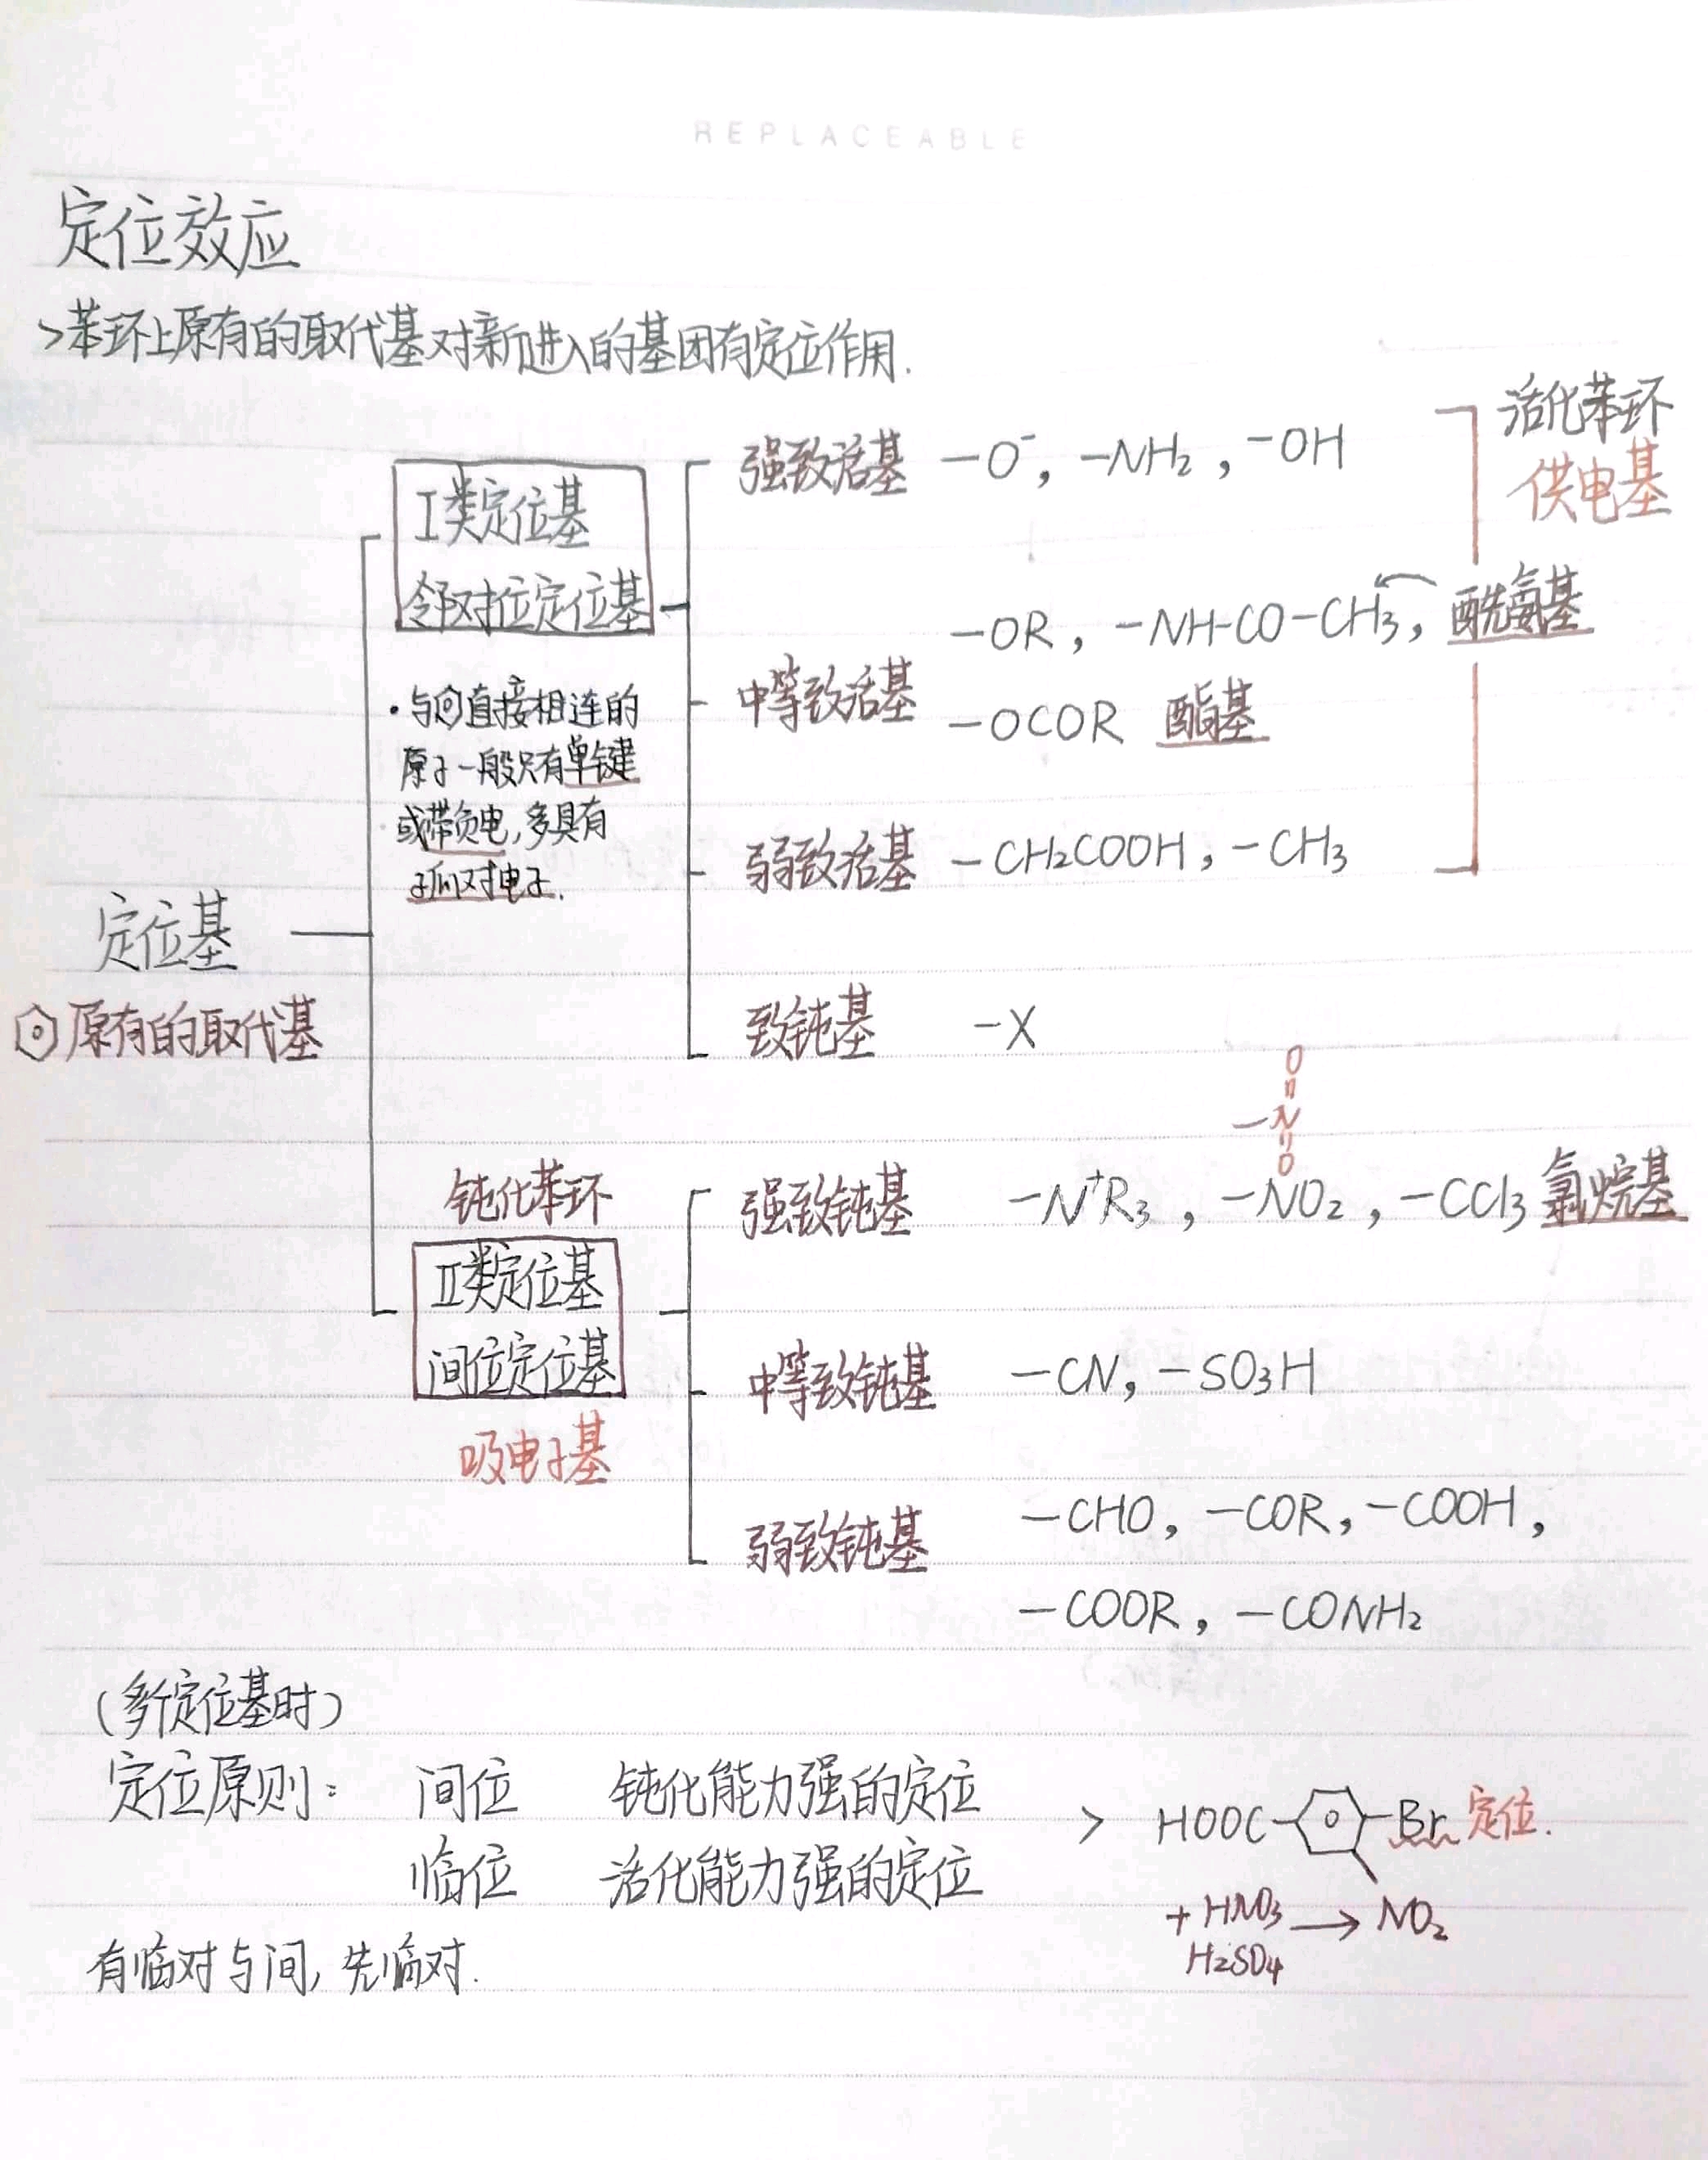 REPLACEABLE
定位效应
>苯环上原有的取代基对新进入的基团有定位作用.
活化苯环
供电基
I类定位基
邻对位定位基
·与⌬直接相连的
原子一般只有单键
或带负电,多具有
孤对电子.
强致活基 —O⁻, —NH₂, —OH
—OR, —NH-CO-CH₃, 酰氨基
中等致活基
—OCOR 酯基
弱致活基 —CH₂COOH, —CH₃
致钝基 —X
定位基
⌬原有的取代基
O
=
—N
=
O
钝化苯环
II类定位基
间位定位基
吸电子基
强致钝基 —N⁺R₃, —NO₂, —CCl₃ 氯烷基
中等致钝基 —CN, —SO₃H
弱致钝基 —CHO, —COR, —COOH,
—COOR, —CONH₂
(多个定位基时)
定位原则: 间位 钝化能力强的定位
临位 活化能力强的定位
> HOOC—⌬—Br 定位.
+ HNO₃ → NO₂
H₂SO₄
有临对与间, 先临对.